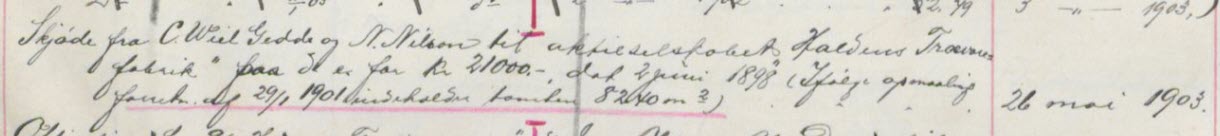 82.79 3 — " — 1903,)
Skjøde fra C. Wiel Gedde og N. Nilson til aktieselskabet „Haldens Trævare-
fabrik" paa d: e: for kr 21000.-, dat 2 juni 1898 (Ifølge opmaaling
forretn. af 29/1 1901 indeholder tomten 8240 m²) 26 mai 1903.